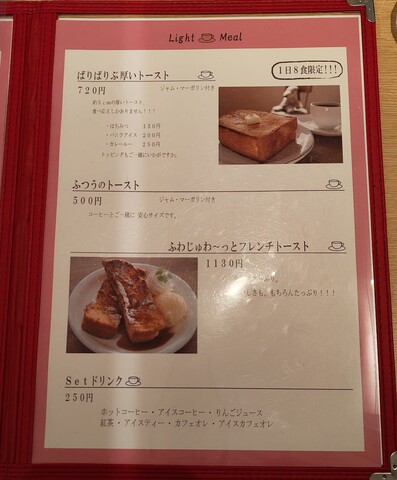 Light Meal
ぱりぱりぶ厚いトースト
1日8食限定!!!
720円 ジャム・マーガリン付き
約5cmの厚いトースト。
食べ応えしかありません!!!
・はちみつ 130円
・バニラアイス 200円
・カレールー 250円
トッピングもご一緒にいかがですか。
ふつうのトースト
500円 ジャム・マーガリン付き
コーヒーとご一緒に 安心サイズです。
ふわじゅわ〜っとフレンチトースト
1130円
り。
しさも、もちろんたっぷり!!!
Setドリンク
250円
ホットコーヒー・アイスコーヒー・りんごジュース
紅茶・アイスティー・カフェオレ・アイスカフェオレ